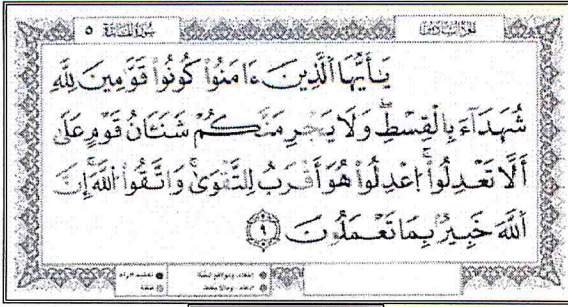 الجزء السادس سورة المائدة ٥
يَـٰٓأَيُّهَا ٱلَّذِينَ ءَامَنُوا۟ كُونُوا۟ قَوَّٰمِينَ لِلَّهِ
شُهَدَآءَ بِٱلْقِسْطِ ۖ وَلَا يَجْرِمَنَّكُمْ شَنَـَٔانُ قَوْمٍ عَلَىٰٓ
أَلَّا تَعْدِلُوا۟ ۚ ٱعْدِلُوا۟ هُوَ أَقْرَبُ لِلتَّقْوَىٰ ۖ وَٱتَّقُوا۟ ٱللَّهَ ۚ إِنَّ
ٱللَّهَ خَبِيرٌۢ بِمَا تَعْمَلُونَ ٩